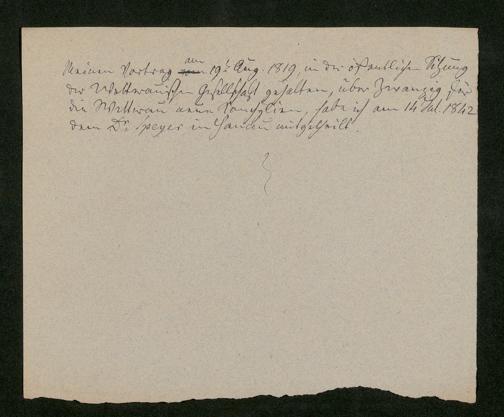 Meinen Vortrag am 19t Aug. 1819, in der öffentlichen Sitzung
der Wetterauischen Gesellschaft gehalten, über Zwanzig für
die Wetterau neue Conchylien, habe ich am 14 Jul. 1842
dem Dr. Speyer in Hanau mitgetheilt.